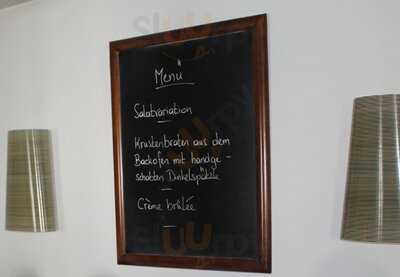 Menü
Salatvariation
Krustenbraten aus dem
Backofen mit handge-
schabten Dinkelspätzle
Crème brûlée